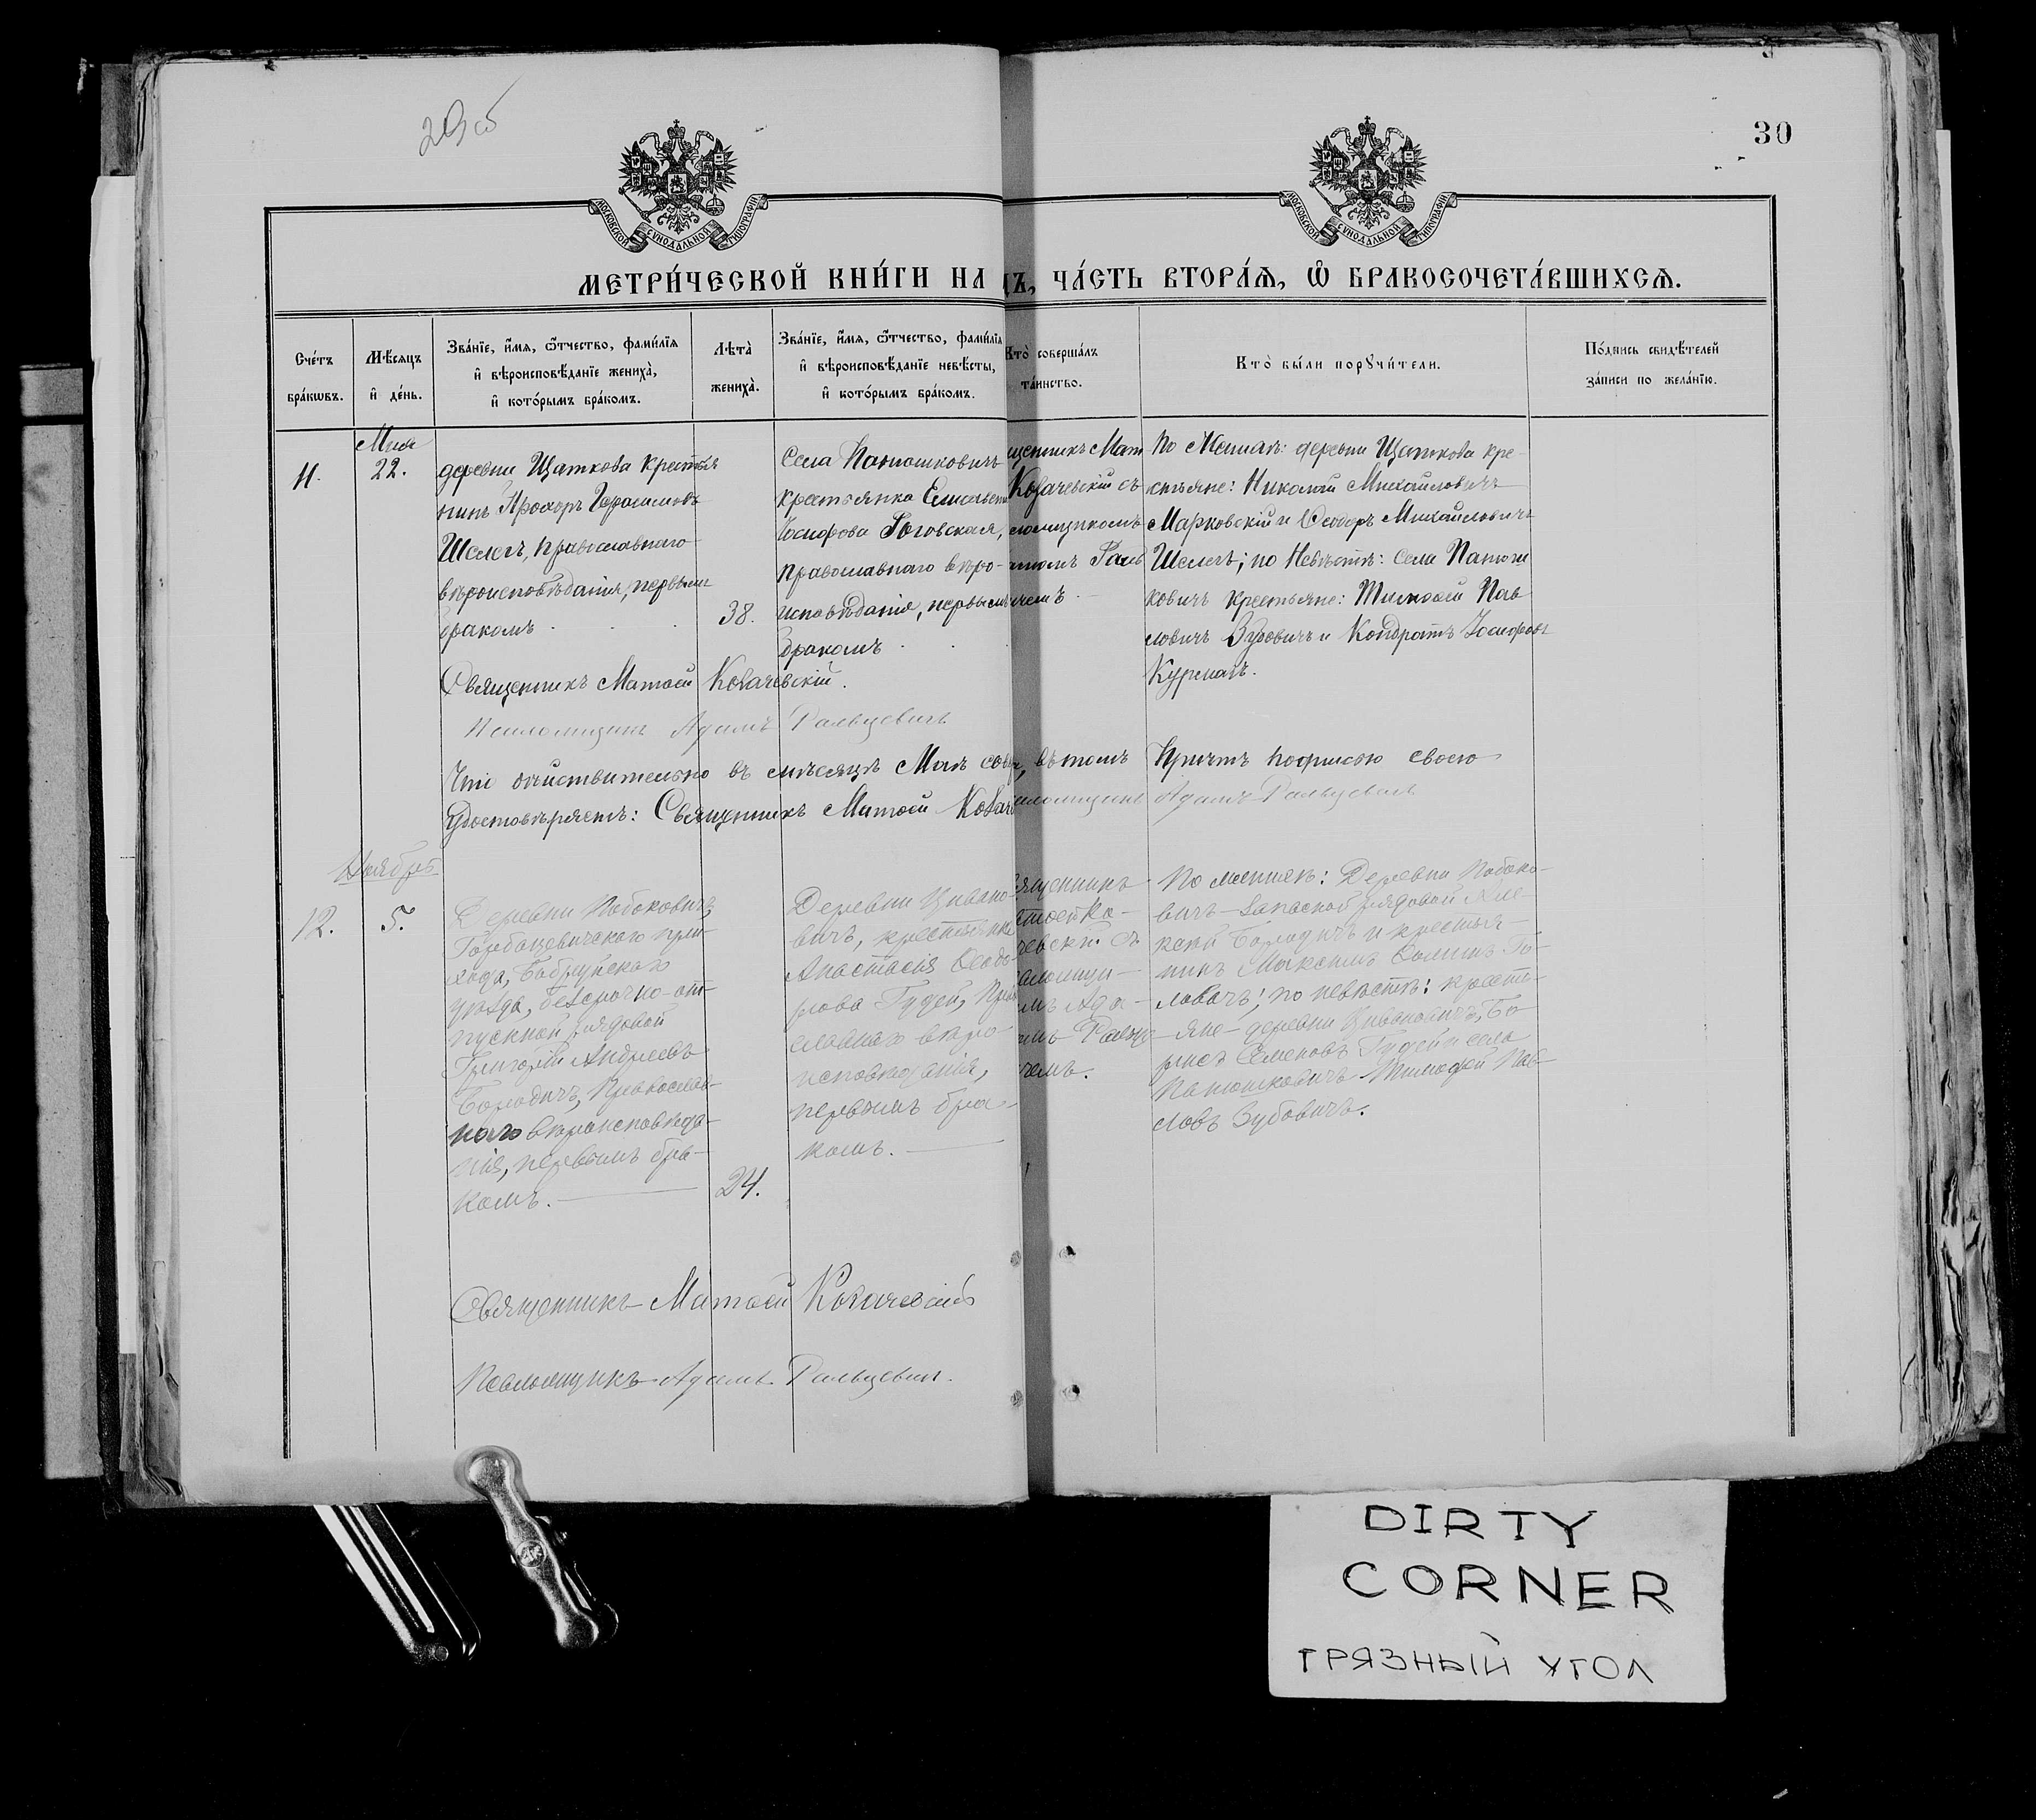 29об
30
МОСКОВСКОЙ СУНОДАЛЬНОЙ ТИПОГРАФІИ
МОСКОВСКОЙ СУНОДАЛЬНОЙ ТИПОГРАФІИ
МЕТРИ́ЧЕСКОЙ КНИ́ГИ НА
ДЪ, ЧА́СТЬ ВТОРА́Я, Ѡ БРАКОСОЧЕТА́ВШИХСЯ.
Сче́тъ
бра́кωвъ.
Мѣ́сяцъ
и҆ де́нь.
Зва́нїе, и҆́мя, ѻ҆́тчество, фами́лїя
и҆ вѣроисповѣ́данїе жениха̀,
и҆ кото́рымъ бра́комъ.
Лѣта̀
жениха̀.
Зва́нїе, и҆́мя, ѻ҆́тчество, фами́лїя
и҆ вѣроисповѣ́данїе невѣ́сты,
и҆ кото́рымъ бра́комъ.
Кто̀ соверша́лъ
та́инство.
Кто̀ бы́ли порꙋчи́тели.
По́дпись свидѣ́телей
за́писи по жела́нїю.
11.
Мая
22.
деревни Щаткова крестья
нинъ Прохоръ Герасимовъ
Шелегъ, православнаго
вѣроисповѣданія, первымъ
бракомъ
38.
Села Панюшковичъ
крестьянка Елисавета
Іосифова Роговская,
православнаго вѣро-
исповѣданія, первымъ
бракомъ
щенникъ Мат
Козачевскій съ
ломщикомъ
Раль
чемъ
По Женихѣ: деревни Щаткова кре-
стьяне: Николай Михайловичъ
Марковскій и Ѳеодоръ Михайловичъ
Шелегъ; по Невѣстѣ: села Панюш
ковичъ крестьяне: Тимоѳей Пав
ловичъ Зубовичъ и Кондратъ Іосифовъ
Курманъ.
Священникъ Матѳей Козачевскій.
Псаломщикъ Адамъ Ральцевичъ
Что дѣйствительно въ мѣсяцѣ Маѣ сов
, въ томъ Причтъ подписью своею
удостовѣряетъ: Священникъ Матѳей Козач
аломщикъ Адамъ Ральцевичъ
Ноября
12.
5.
Деревни Побоковичъ,
Горбацевичскаго при-
хода, Бобруйскаго
уѣзда, безсрочно-от-
пускной рядовой
Григорій Андреевъ
Бородичъ, Православ-
наго вѣроисповѣда-
нія, первымъ бра-
комъ.
24.
Деревни Цивоно-
вичъ, крестьянка
Анастасія Ѳеодо-
рова Гудей, Прав
славнаго вѣро-
исповѣданія,
первымъ бра-
комъ.
ященникъ
атѳей Ко-
чевскій съ
аломщи-
мъ Ада-
мъ Ральце
чемъ.
По женихѣ: Деревни Побоко-
вичъ запасной рядовой Але-
ксѣй Бородичъ и крестья-
нинъ Максимъ Го-
ловачъ; по невѣстѣ: крестъ-
яне деревни Цивоновичъ, Бо-
рисъ Семеновъ Гудей и села
Панюшковичъ Тимоѳей Пав-
ловъ Зубовичъ.
Священникъ Матѳей Козачевскій
Псаломщикъ Адамъ Ральцевичъ.
DIRTY
CORNER
ГРЯЗНЫЙ УГОЛ